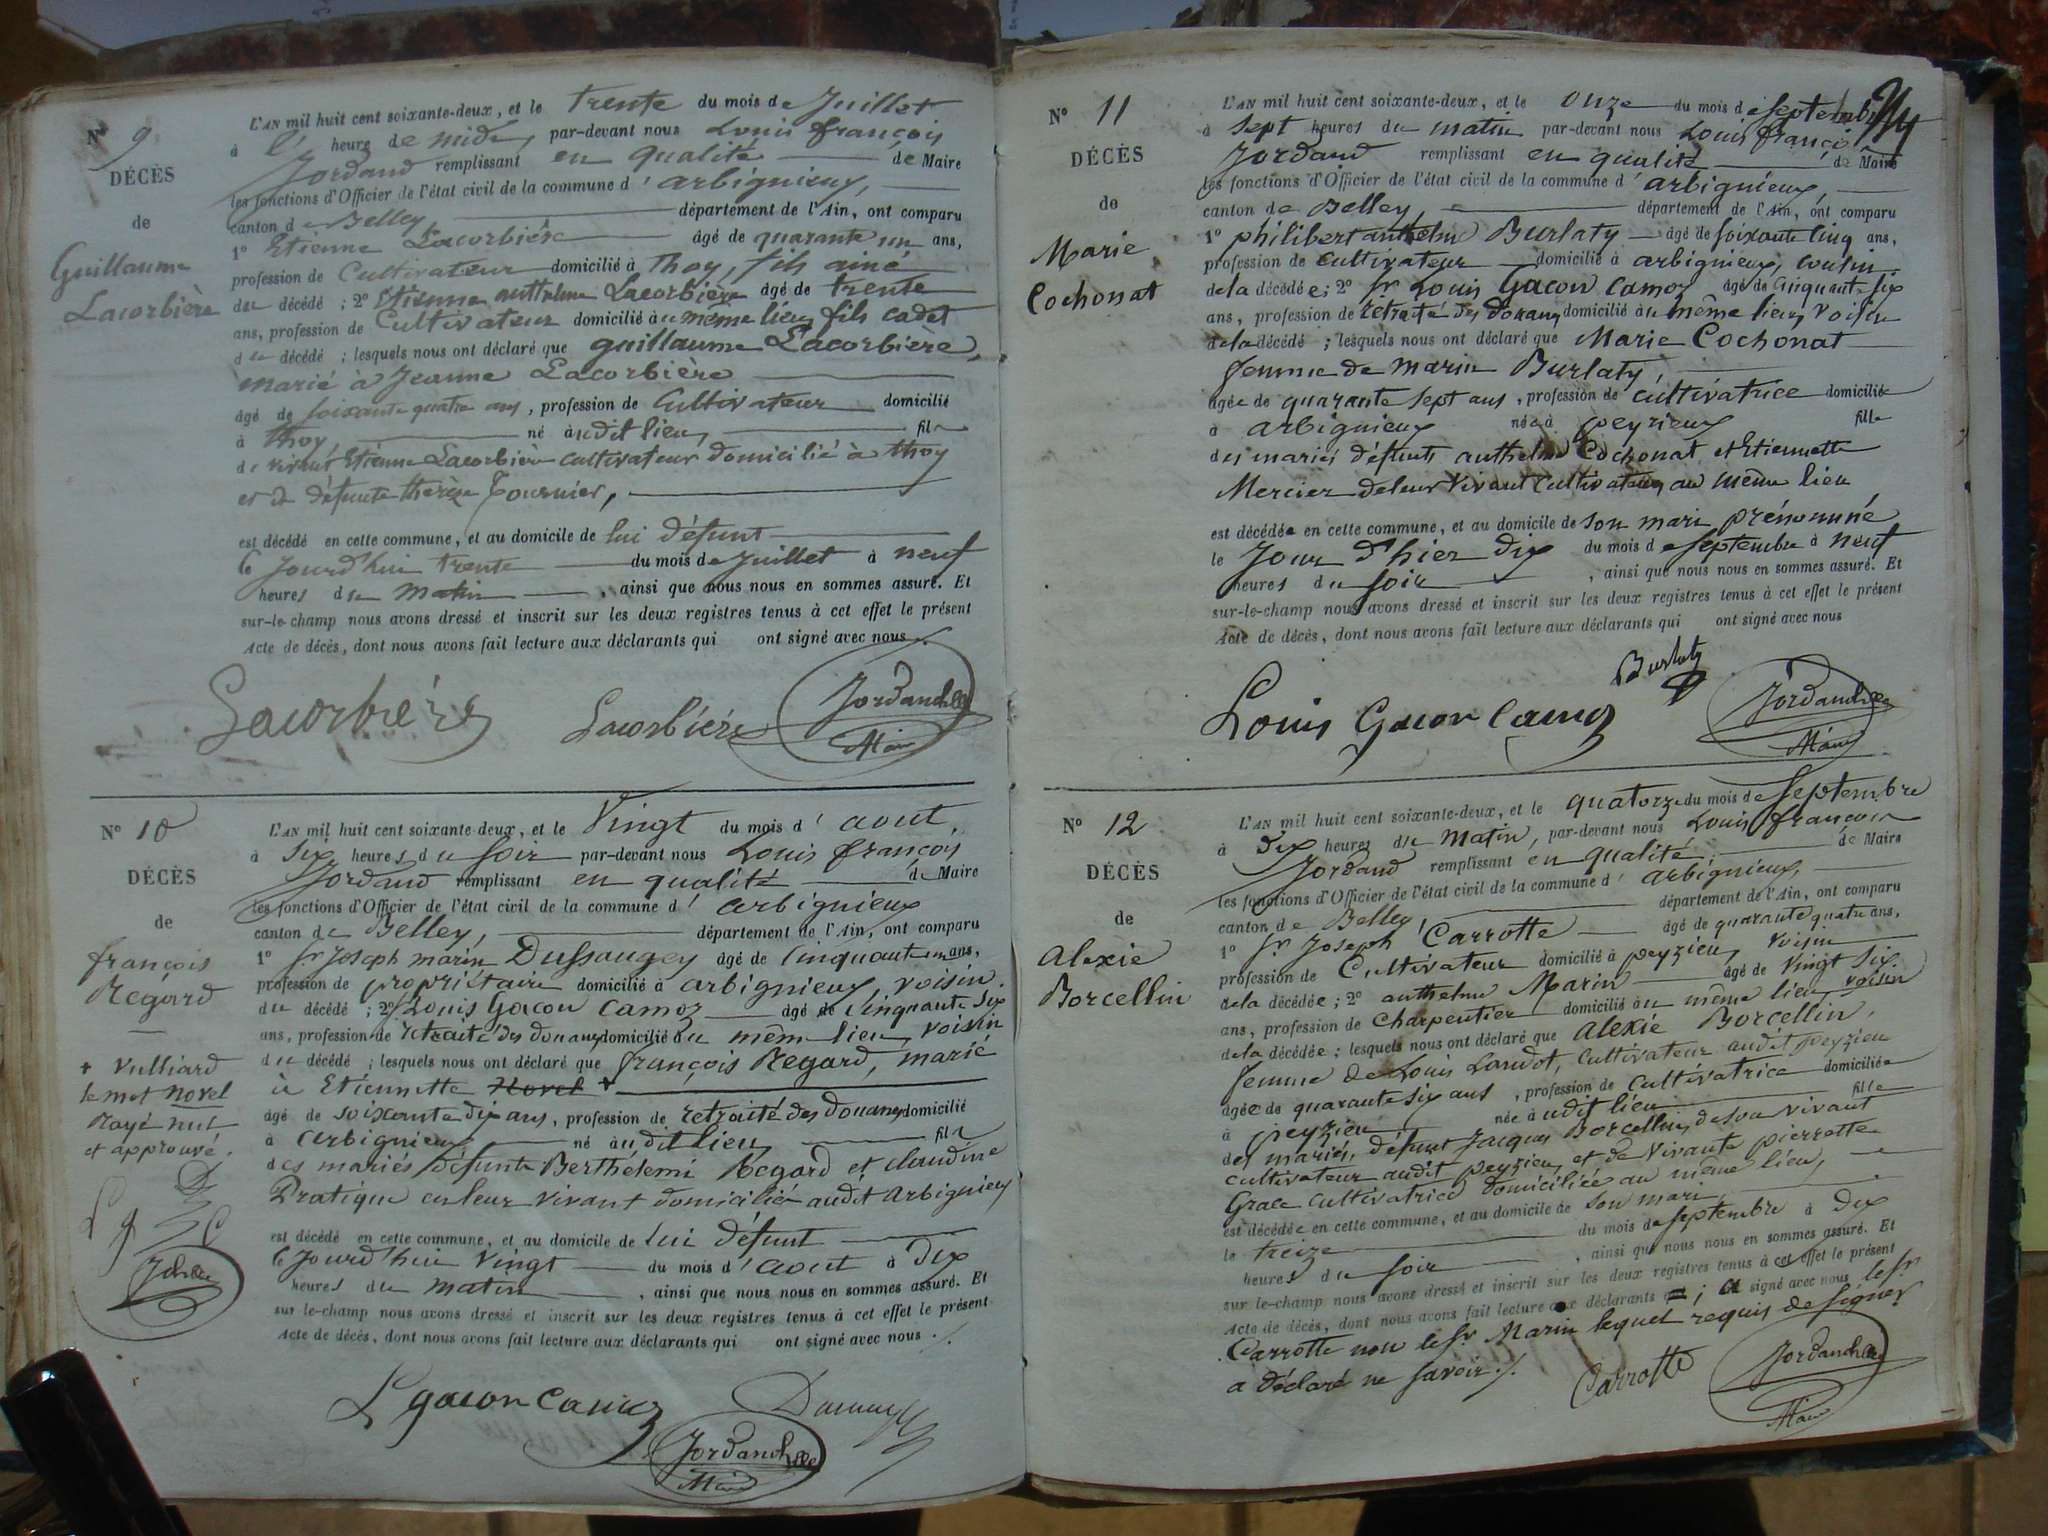 N° 9
DÉCÈS
de
Guillaume
Lacorbière
L'AN mil huit cent soixante-deux, et le trente du mois de Juillet
à heure de midi, par-devant nous Louis françois
Jordand remplissant en qualité de Maire
les fonctions d'Officier de l'état civil de la commune d'arbignieux,
canton de Belley, département de l'Ain, ont comparu
1° Etienne Lacorbière âgé de quarante un ans,
profession de Cultivateur domicilié à Thoy, fils ainé
du décédé ; 2° Etienne anthelme Lacorbière âgé de trente
ans, profession de Cultivateur domicilié au même lieu, fils cadet
du décédé ; lesquels nous ont déclaré que guillaume Lacorbière,
marié à Jeanne Lacorbière
âgé de soixante quatre ans, profession de Cultivateur domicilié
à Thoy, né àudit lieu, fils
de vivant Etienne Lacorbière cultivateur domicilié à thoy
et de défunte therèze fournier,
est décédé en cette commune, et au domicile de lui défunt
le jourd'hui trente du mois de Juillet à neuf
heures du matin, ainsi que nous nous en sommes assuré. Et
sur-le-champ nous avons dressé et inscrit sur les deux registres tenus à cet effet le présent
Acte de décès, dont nous avons fait lecture aux déclarants qui ont signé avec nous ./.
Lacorbière Lacorbière Jordand
Maire
N° 10
DÉCÈS
de
françois
Regard
+ Vulliard
le mot novel
Rayé nul
et approuvé.
L'AN mil huit cent soixante-deux, et le Vingt du mois d'aout,
à six heures du soir par-devant nous Louis françois
Jordand remplissant en qualité de Maire
les fonctions d'Officier de l'état civil de la commune d'arbignieux
canton de Belley, département de l'Ain, ont comparu
1° Sr Joseph marin Dussaugey âgé de Cinquante un ans,
profession de propriétaire domicilié à arbignieux, voisin
du décédé ; 2° Louis Gacon Camoz âgé de Cinquante six
ans, profession de retraité des douanes domicilié au même lieu, voisin
du décédé ; lesquels nous ont déclaré que françois Regard, marié
à Etiennette Novel +
âgé de soixante dix ans, profession de retraité des douanes domicilié
à arbignieux né àudit lieu, fils
des mariés défunts Berthelemi Regard et claudine
Pratique en leur vivant domiciliés audit arbignieux
est décédé en cette commune, et au domicile de lui défunt
le jourd'hui vingt du mois d'aout à dix
heures du matin, ainsi que nous nous en sommes assuré. Et
sur-le-champ nous avons dressé et inscrit sur les deux registres tenus à cet effet le présent
Acte de décès, dont nous avons fait lecture aux déclarants qui ont signé avec nous ./.
L gacon Camoz
Jordand
Maire
N° 11
DÉCÈS
de
Marie
Cochonat
L'AN mil huit cent soixante-deux, et le onze du mois de septembre
à sept heures du matin par-devant nous Louis françois
Jordand remplissant en qualité de Maire
les fonctions d'Officier de l'état civil de la commune d'arbignieux,
canton de Belley, département de l'Ain, ont comparu
1° philibert anthelme Burlaty âgé de soixante cinq ans,
profession de cultivateur domicilié à arbignieux, cousin
de la décédée ; 2° Sr Louis Gacon Camoz âgé de Cinquante six
ans, profession de retraité des douanes domicilié au même lieu, voisin
de la décédé ; lesquels nous ont déclaré que Marie Cochonat
femme de marin Burlaty,
âgée de quarante sept ans, profession de cultivatrice domiciliée
à arbignieux née à peyrieux fille
des mariés défunts anthelme Cochonat et Etiennette
Mercier de leur vivant cultivateurs au même lieu
est décédée en cette commune, et au domicile de son mari prénommé
le jour d'hier dix du mois de septembre à neuf
heures du soir, ainsi que nous nous en sommes assuré. Et
sur-le-champ nous avons dressé et inscrit sur les deux registres tenus à cet effet le présent
Acte de décès, dont nous avons fait lecture aux déclarants qui ont signé avec nous
Burlaty
Louis Gacon Camoz Jordand
Maire
N° 12
DÉCÈS
de
Alexie
Borcellin
L'AN mil huit cent soixante-deux, et le quatorze du mois de septembre
à dix heures du matin, par-devant nous Louis françois
Jordand remplissant en qualité de Maire
les fonctions d'Officier de l'état civil de la commune d'arbignieux,
canton de Belley, département de l'Ain, ont comparu
1° Sr Joseph Carrotte âgé de quarante quatre ans,
profession de Cultivateur domicilié à peyzieu, voisin
de la décédée ; 2° anthelme Marin âgé de vingt six
ans, profession de Charpentier domicilié au même lieu, voisin
de la décédée ; lesquels nous ont déclaré que alexie Borcellin,
femme de Louis Landot, cultivateur audit peyzieu
âgée de quarante six ans, profession de cultivatrice domiciliée
à peyzieu, née àudit lieu fille
des mariés, défunt Jacques Borcellin, de son vivant
cultivateur audit peyzieu, et de vivante pierrette
Grace cultivatrice domiciliée au même lieu,
est décédée en cette commune, et au domicile de son mari,
le treize du mois de septembre à dix
heures du soir, ainsi que nous nous en sommes assuré. Et
sur-le-champ nous avons dressé et inscrit sur les deux registres tenus à cet effet le présent
Acte de décès, dont nous avons fait lecture aux déclarants ; a signé avec nous le Sr
Carrotte non le Sr Marin lequel requis de signer
a déclaré ne savoir ./.
Carrotte Jordand
Maire